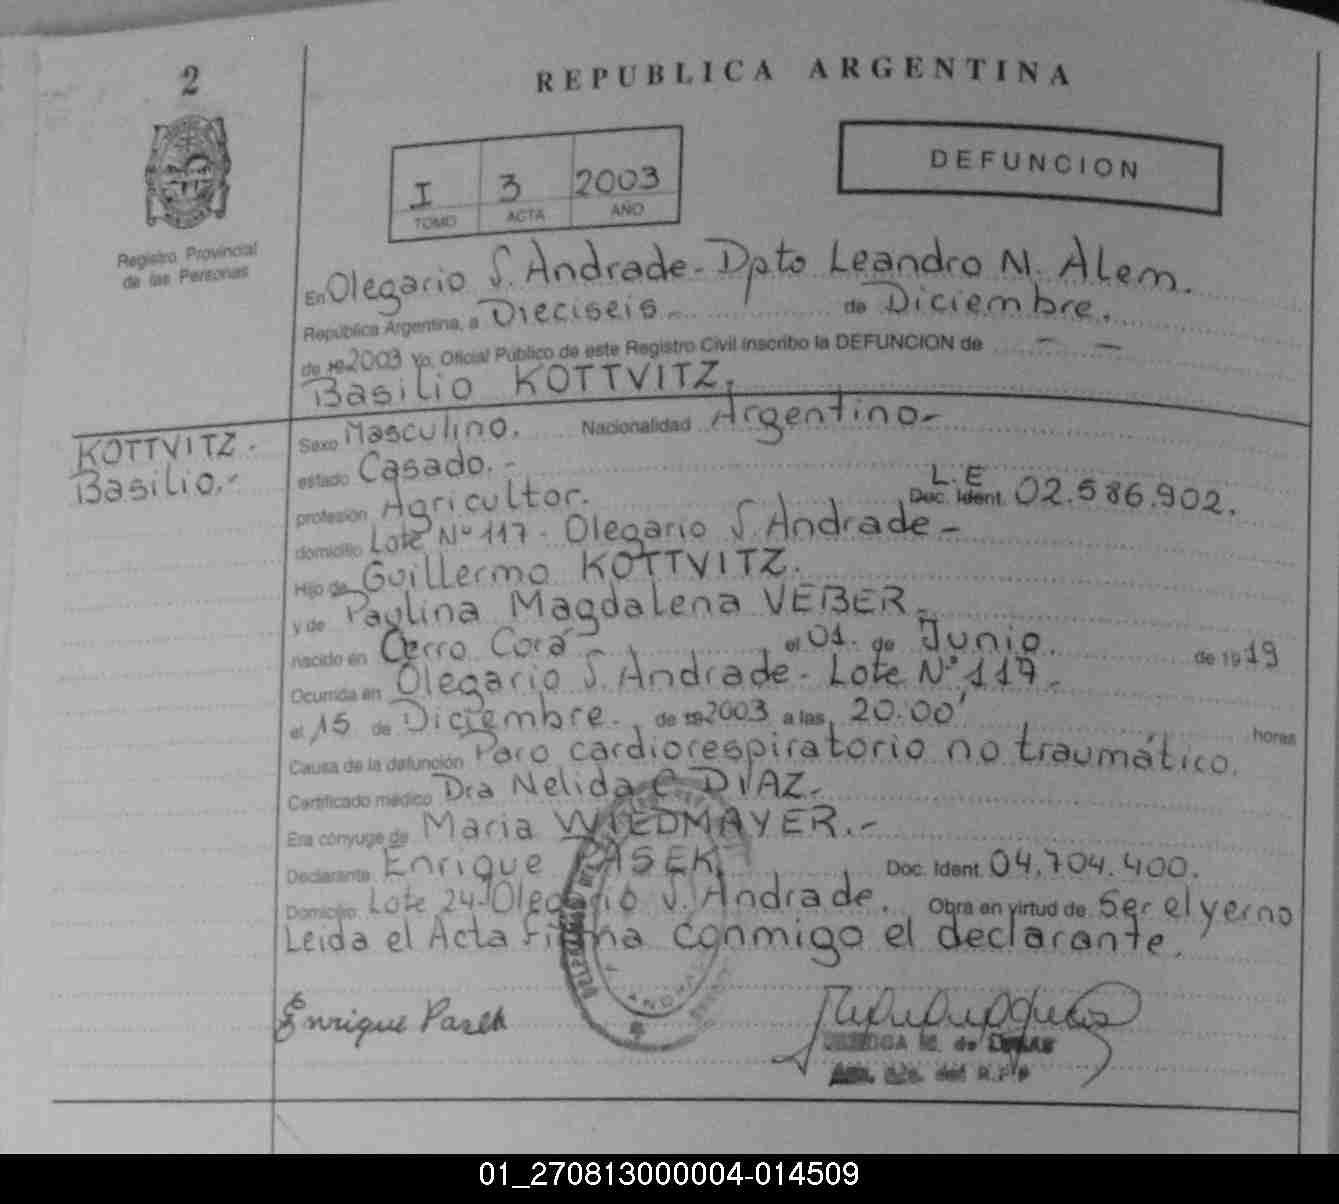 2
REPUBLICA ARGENTINA
Registro Provincial
de las Personas
I 3 2003
TOMO ACTA AÑO
DEFUNCION
En Olegario S. Andrade - Dpto Leandro N. Alem.
República Argentina, a Dieciseis.- de Diciembre.
de 19 2003 Yo, Oficial Público de este Registro Civil inscribo la DEFUNCION de - -
Basilio KOTTVITZ.
KOTTVITZ.
Basilio.-
Sexo Masculino. Nacionalidad Argentino-
estado Casado.-
profesión Agricultor. L.E Doc. Ident. 02.586.902.
domicilio Lote Nº 117 - Olegario S. Andrade -
Hijo de Guillermo KOTTVITZ.
y de Paulina Magdalena VEBER.
nacido en Cerro Corá el 01. de Junio. de 19 19
Ocurrida en Olegario S. Andrade - Lote Nº 117.
el 15 de Diciembre. de 19 2003 a las 20:00' horas
Causa de la defunción Paro cardiorespiratorio no traumático.
Certificado médico Dra Nelida C DIAZ.-
Era cónyuge de Maria WIEDMAYER.-
Declarante Enrique PASEK Doc. Ident. 04.704.400.
Domicilio Lote 24-Olegario S. Andrade. Obra en virtud de Ser el yerno
Leida el Acta firma conmigo el declarante.
Enrique Pasek
01_270813000004-014509